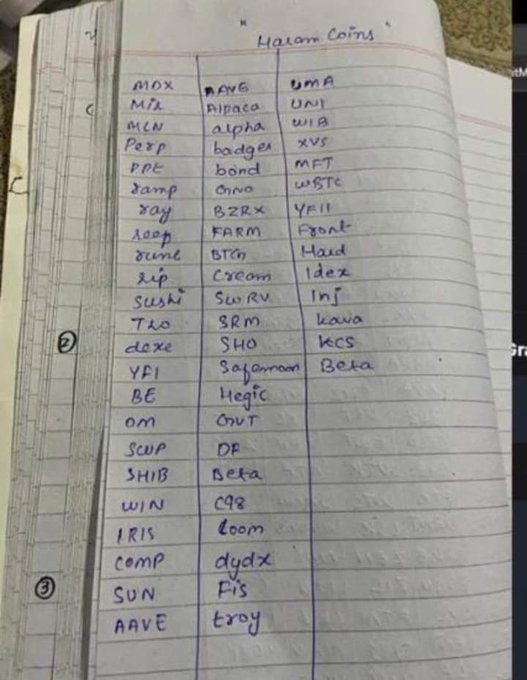 Haram Coins
MDX AAVE UMA
Mir Alpaca UNI
MLN alpha WIB
Perp badger XVS
PPt bond MFT
ramp GNO WBTC
ray BZRX YFII
reep FARM Front
rune BTCn Hard
rip Cream Idex
sushi SWRV Inj
TKO SRM kava
dexe SHO KCS
YFI Safemoon Beta
BE Hegic
OM GVT
SWP DF
SHIB Beta
WIN C98
IRIS loom
COMP dydx
SUN Fis
AAVE troy
2
3